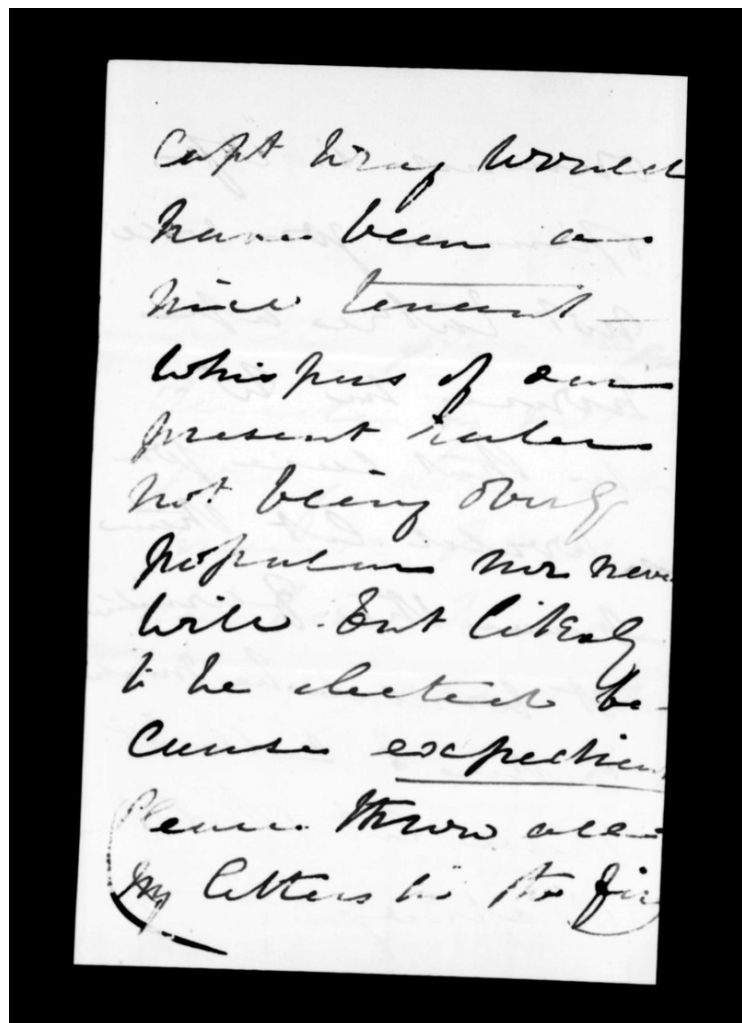 Capt Wray would
have been a
nice tenant
Whispers of our
present ruler
not being
popular nor never
will. But likely
to be elected be
cause expedient
Please throw all
my letters in the fire